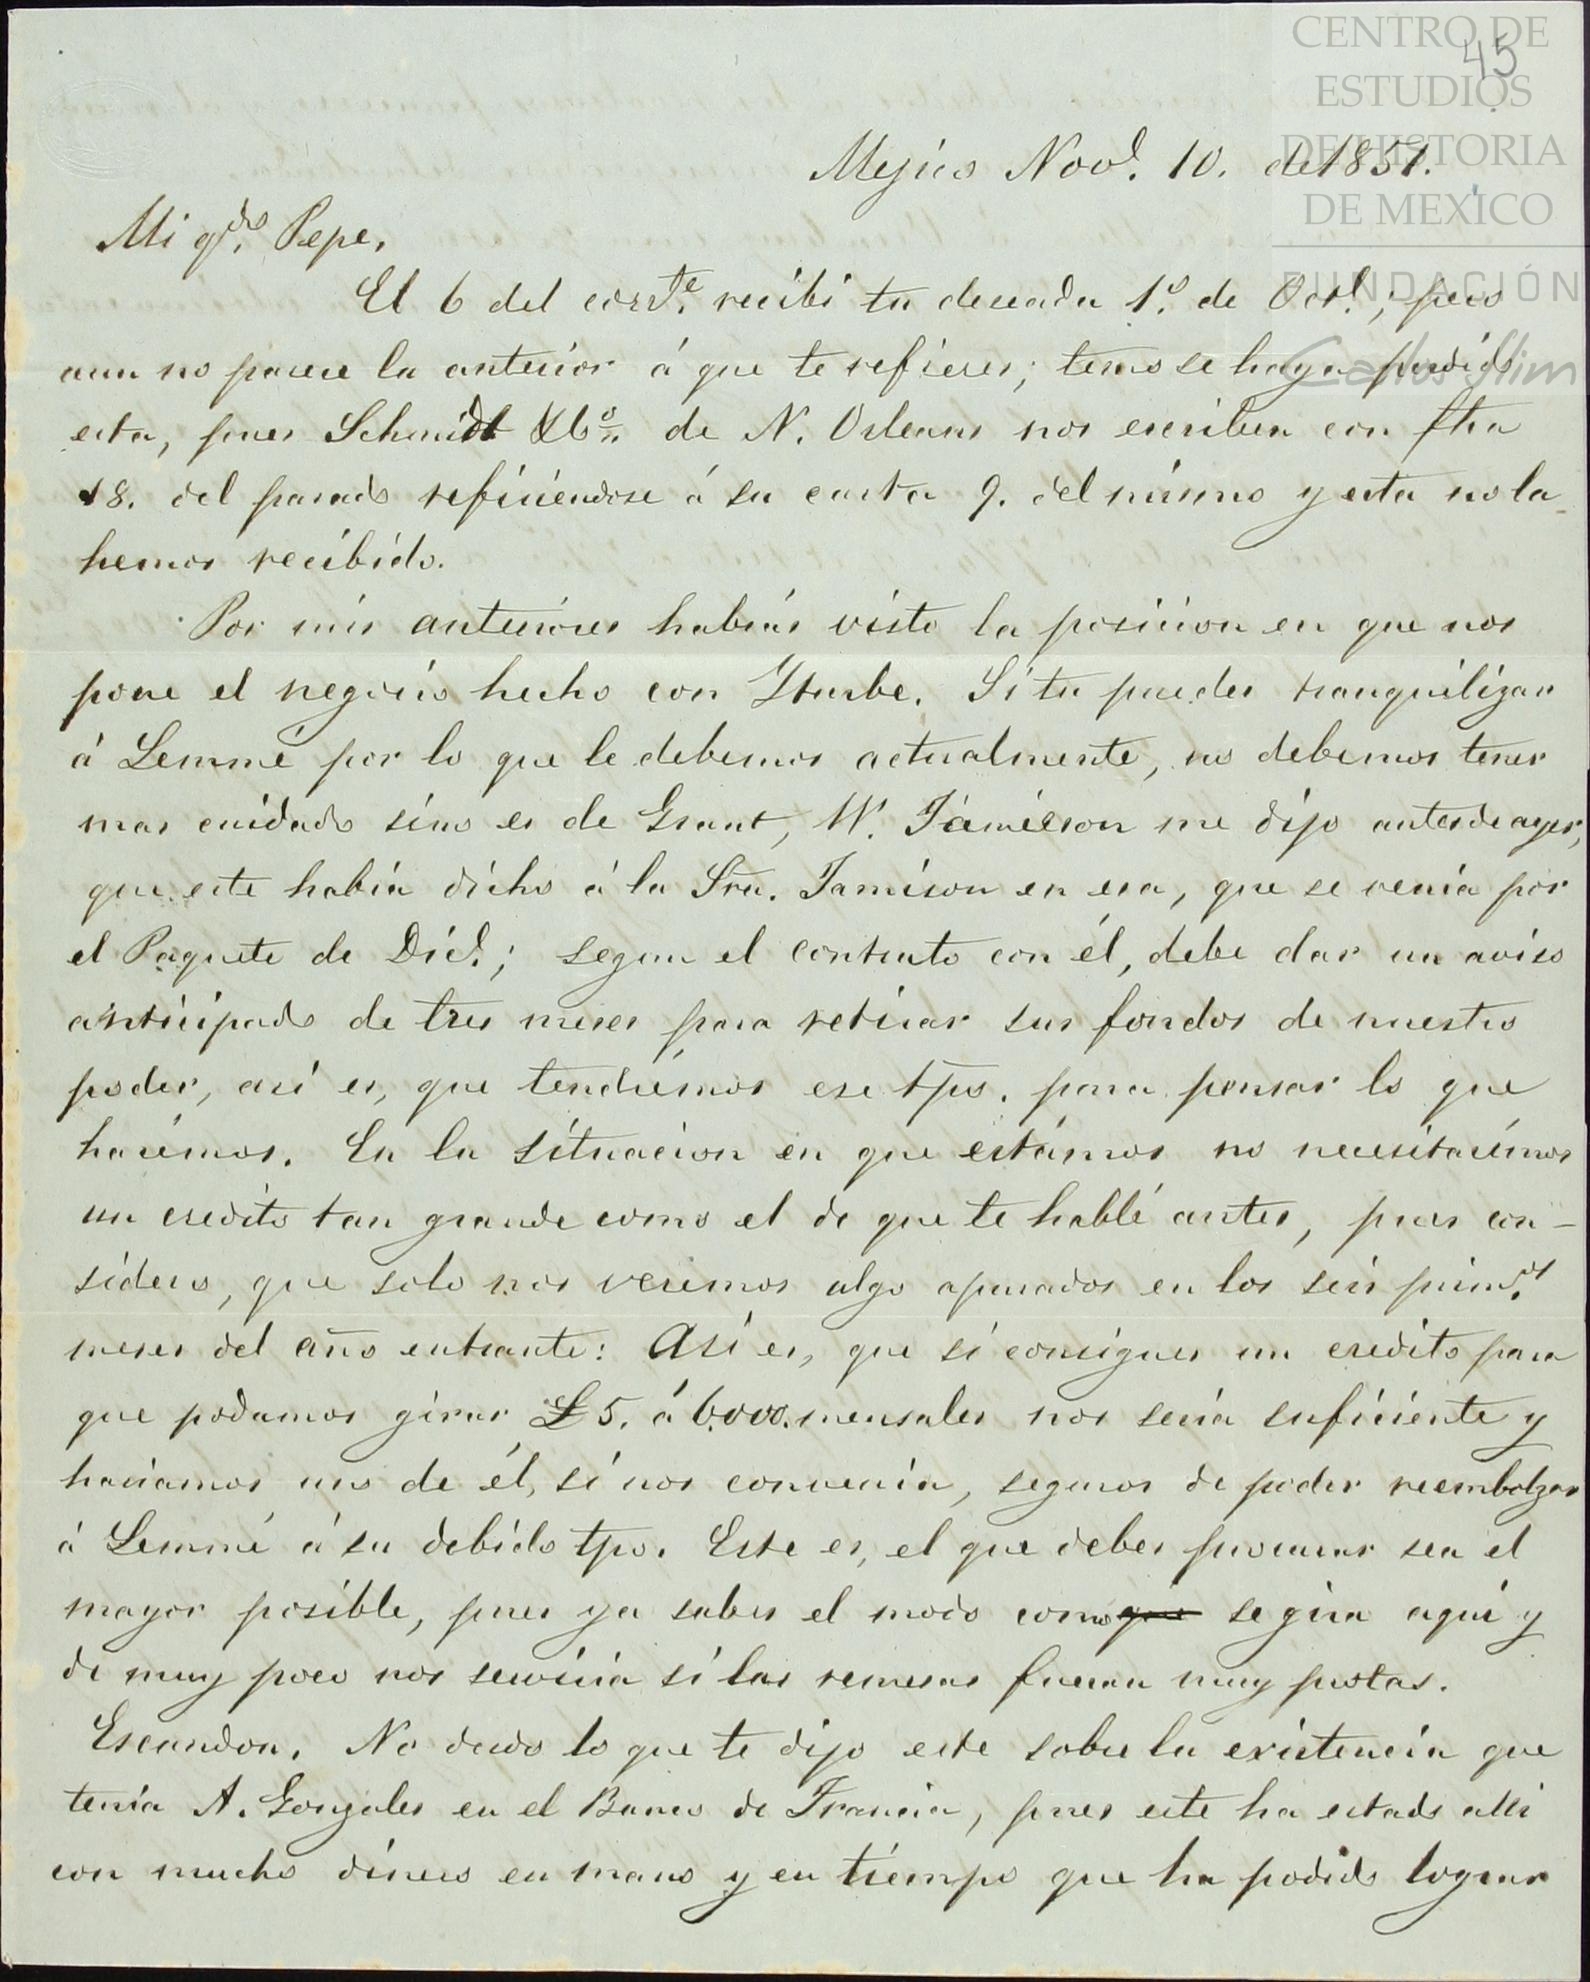 CENTRO DE
ESTUDIOS
DE HISTORIA
DE MEXICO
FUNDACIÓN
Carlos Slim
45
Mejico Nov.e 10. de 1851.
Mi q.do Pepe,
El 6 del corr.te recibi tu deseada 1.o de Oct.e, pero
aun no parece la anterior á que te refieres; temo se haya perdido
esta, pues Schmidt & Co. de N. Orleans nos escriben con fha
18. del pasado refiriendose á su carta 9. del mismo y esta no la
hemos recibido.
Por mis anteriores habrás visto la posicion en que nos
pone el negocio hecho con Yturbe. Si tu puedes tranquilizar
á Lemmé por lo que le debemos actualmente, no debemos tener
mas cuidado sino es de Grant, W. Jamieson me dijo antesdeayer,
que este habia dicho á la Sra. Jamison en esa, que se venia por
el Paquete de Dic.e; segun el contrato con él, debe dar un aviso
anticipado de tres meses para retirar sus fondos de nuestro
poder, asi es, que tendriemos ese tpo. para pensar lo que
harémos. En la situacion en que estámos no necesitariamos
un credito tan grande como el de que te hablé antes, pues con-
sidero, que solo nos veremos algo apurados en los seis prim.s
meses del año entrante: Asi es, que si consigues un credito para
que podamos girar £5. á 6.000. mensales nos seria suficiente y
hariamos uso de él, si nos convenia, seguros de poder reembolzar
á Lemmé á su debido tpo. Este es, el que debes procurar sea el
mayor posible, pues ya sabes el modo como que se gira aqui y
de muy poco nos serviria si las remesas fueran muy prontas.
Escandon. No dudo lo que te dijo este sobre la existencia que
tenia A. Gonzales en el Banco de Francia, pues este ha estado alli
con mucho dinero en mano y en tiempo que ha podido lograr